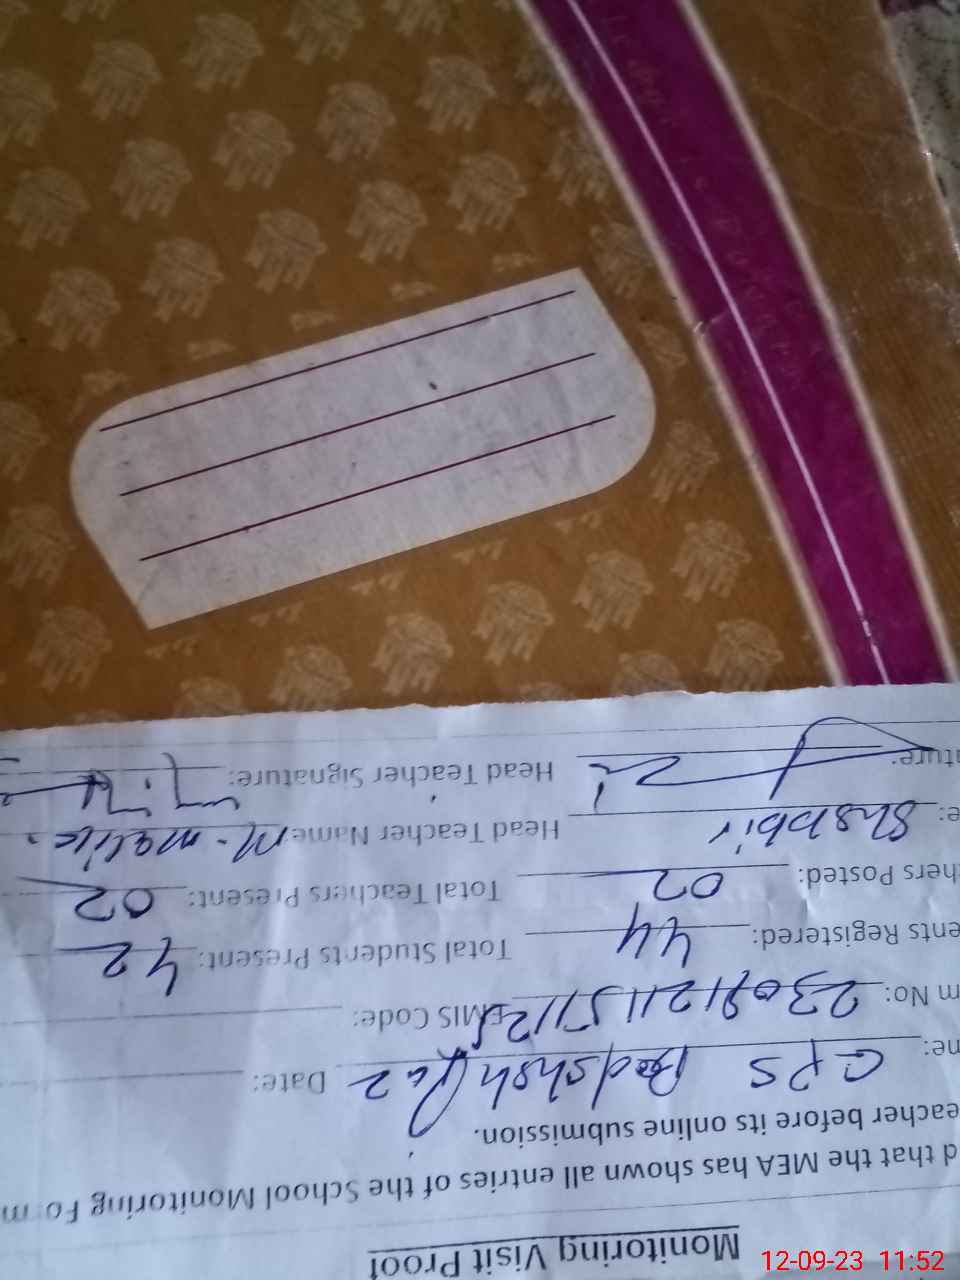 Monitoring Visit Proof
d that the MEA has shown all entries of the School Monitoring Form
eacher before its online submission.
me: GPS Badshah Date:
m No: EMIS Code:
ents Registered: 44 Total Students Present: 42
hers Posted: 02 Total Teachers Present: 02
e: Shabbir Head Teacher Name: M. malic.
ture: Head Teacher Signature:
12-09-23 11:52